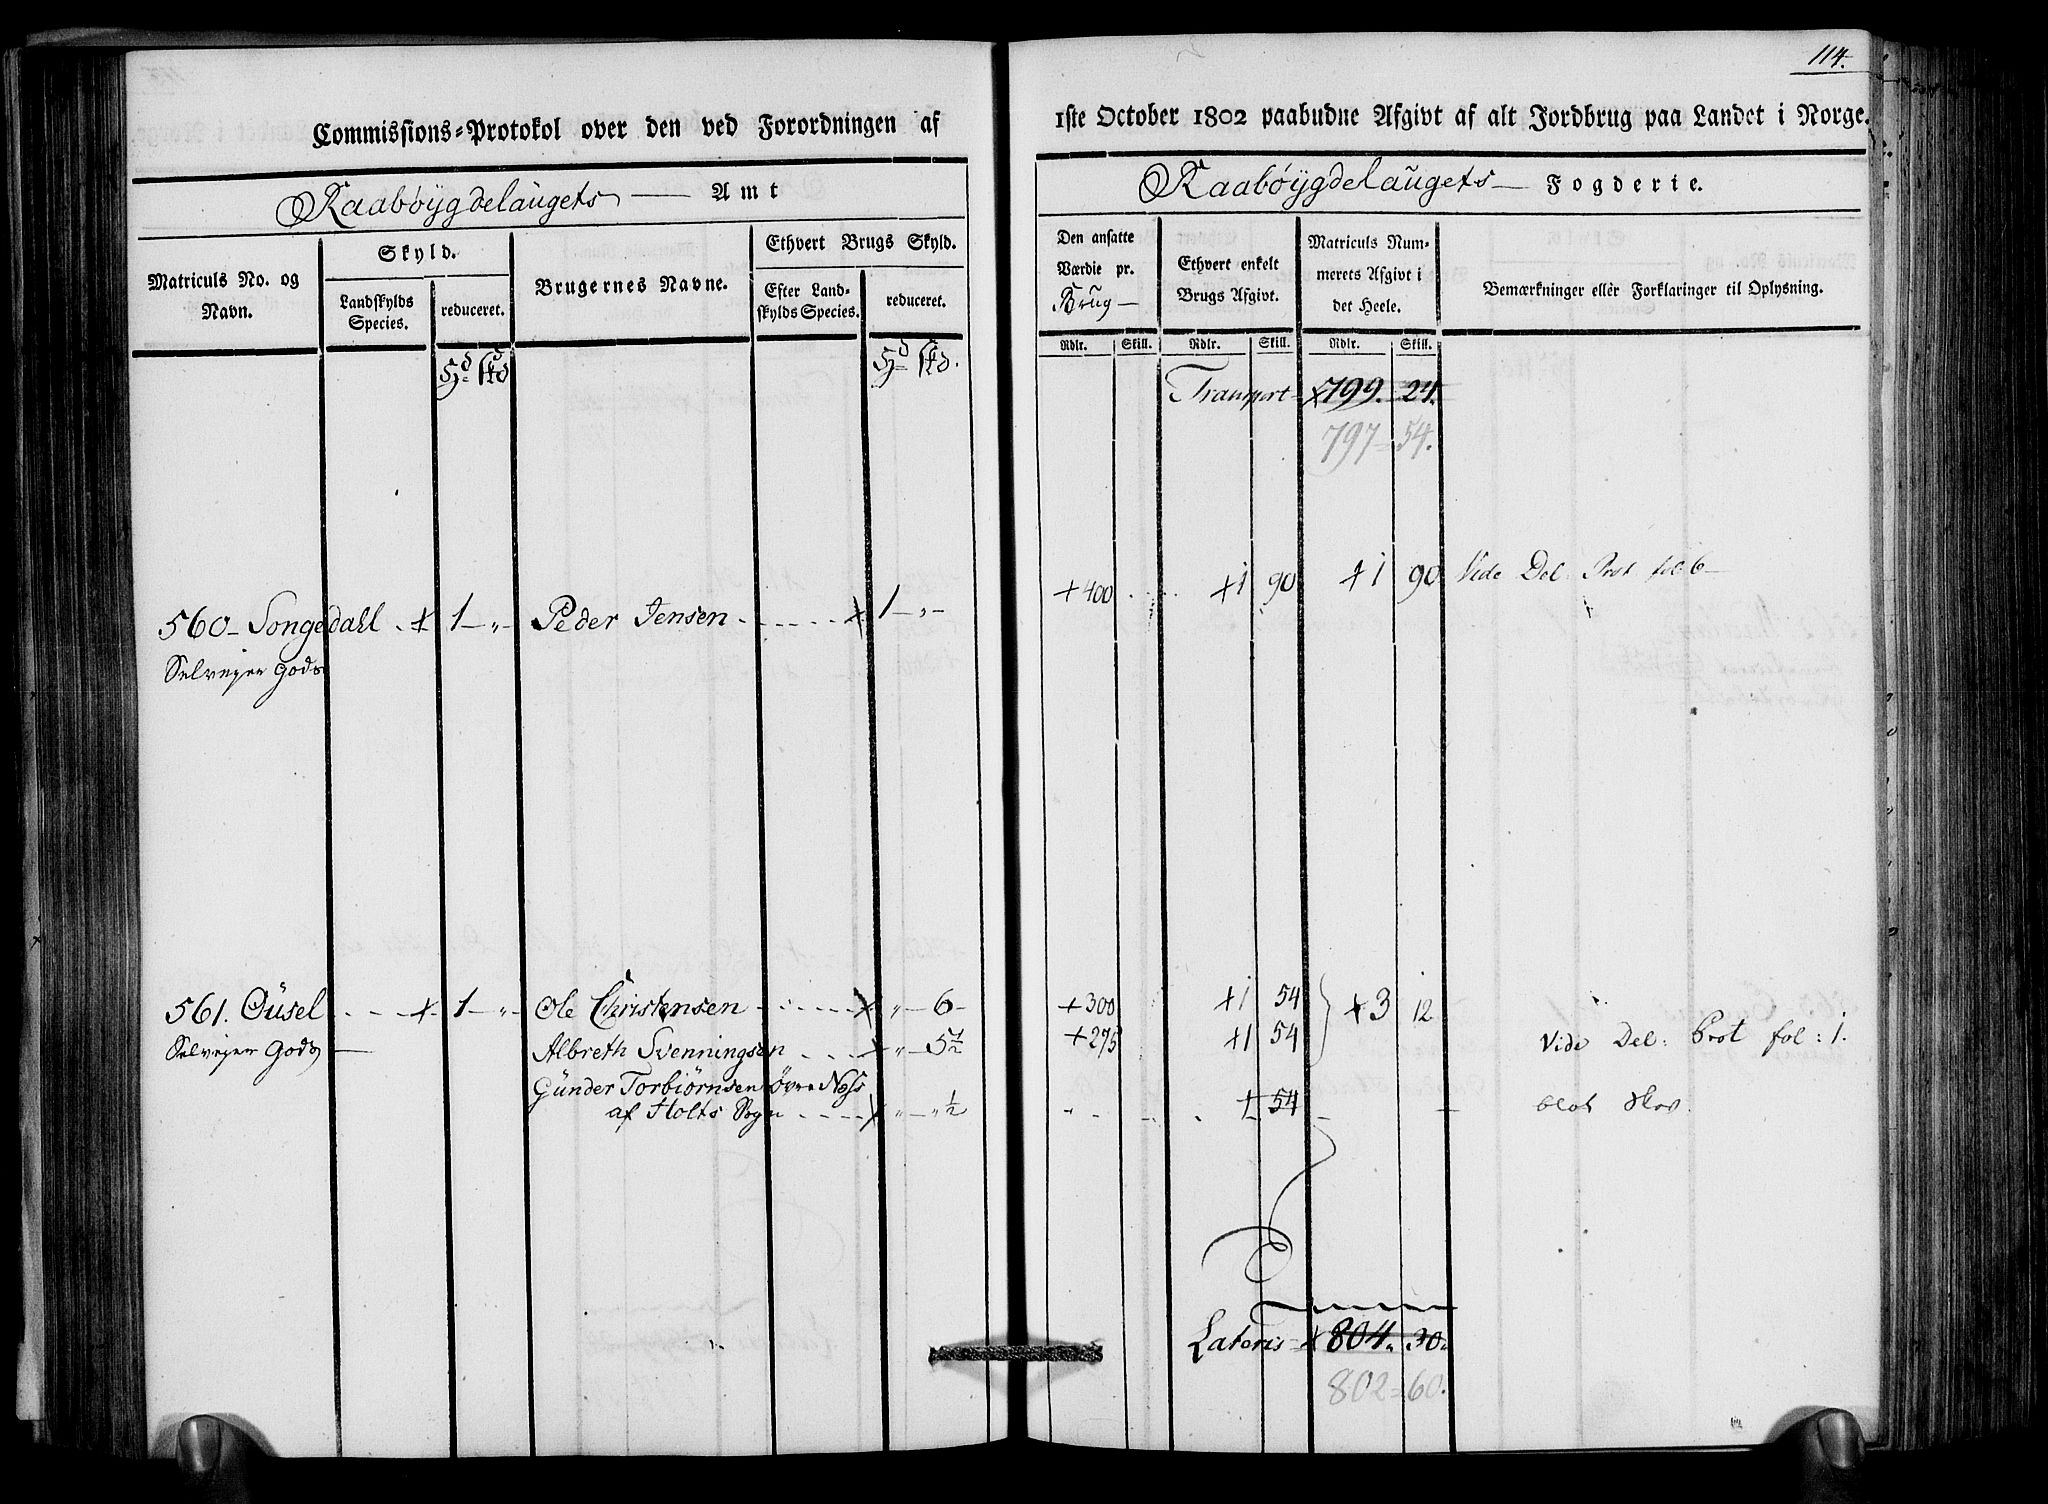 114.
Commissions-Protokol over den ved Forordningen af 1ste October 1802 paabudne Afgivt af alt Jordbrug paa Landet i Norge.
Raabøygdelaugets Amt
Raabøygdelaugets Fogderie.
Matriculs No. og Navn.
Skyld.
Landskylds Species.
reduceret.
Brugernes Navne.
Ethvert Brugs Skyld.
Efter Landskylds Species.
reduceret.
Den ansatte Værdie pr. Brug
Ethvert enkelt Brugs Afgivt.
Matriculs Nummerets Afgivt i det Heele.
Bemærkninger eller Forklaringer til Oplysning.
Rdlr. Skill. Rdlr. Skill. Rdlr. Skill.
Transport 799. 24.
797 = 54.
560 - Songedahl + 1 - „ - Peder Jensen + 1 - „ - + 400 + 1 90 + 1 90 Vide Del. Prot fol. 6 -
Selveyer Gods
561. Øüsel + 1 - „ - Ole Christensen + „ - 6 - + 300 + 1 54 + 3 12
Selveyer Gods Albreth Svenningsen + „ - 5½ + 275 + 1 54 Vide Del: Prot fol: 1.
Günder Torbiørnsen Øvre Næss
af Holts Sogn + „ - „ ½ 1 54 blot Skov.
Lateris 804. 30.
802 = 60.